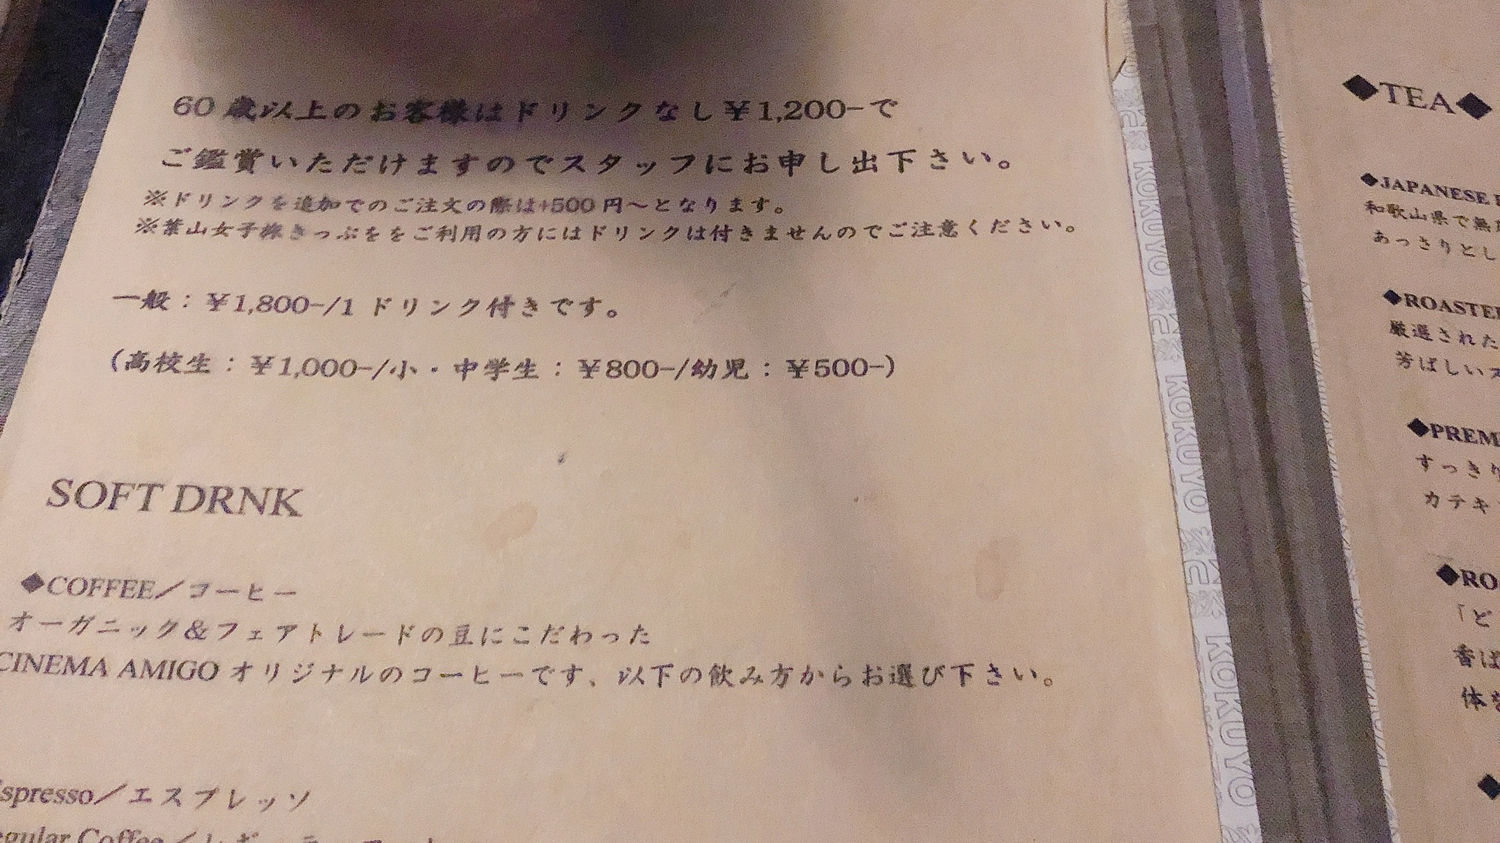 60 歳以上のお客様はドリンクなし¥1,200-で
ご鑑賞いただけますのでスタッフにお申し出下さい。
※ドリンクを追加でのご注文の際は+500 円～となります。
※葉山女子旅きっぷををご利用の方にはドリンクは付きませんのでご注意ください。
一般：¥1,800-/1 ドリンク付きです。
(高校生：¥1,000-/小・中学生：¥800-/幼児：¥500-)
SOFT DRNK
◆COFFEE／コーヒー
オーガニック＆フェアトレードの豆にこだわった
CINEMA AMIGO オリジナルのコーヒーです、以下の飲み方からお選び下さい。
Espresso／エスプレッソ
Regular Coffee／レギュラーコーヒー
◆TEA◆
◆JAPANESE
和歌山県で無
あっさりとし
◆ROASTE
厳選された
芳ばしい
◆PREM
すっきり
カテキ
◆RO
「ど
香ば
体を
KOKUYO
KOKUYO
KOKUYO